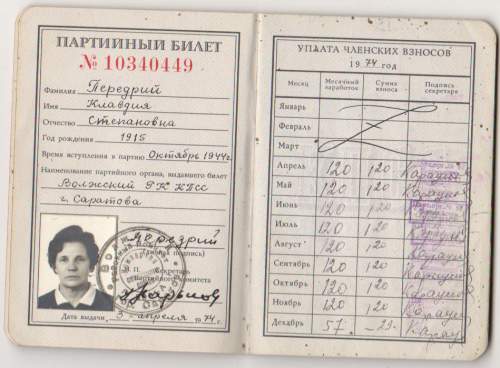 ПАРТИЙНЫЙ БИЛЕТ
№ 10340449
Фамилия Передрий
Имя Клавдия
Отчество Степановна
Год рождения 1915
Время вступления в партию Октябрь 1944г.
Наименование партийного органа, выдавшего билет
Волжский РК КПСС
г. Саратова
Передрий
(личная подпись)
М. П. Секретарь
партийного комитета
Дата выдачи 3 апреля 1974 г.
УПЛАТА ЧЛЕНСКИХ ВЗНОСОВ
1974 год
Месяц Месячный заработок Сумма взноса Подпись секретаря
Январь
Февраль
Март
Апрель 120 1,20
Май 120 1,20
Июнь 120 1,20
Июль 120 1,20
Август 120 1,20
Сентябрь 120 1,20
Октябрь 120 1,20
Ноябрь 120 1,20
Декабрь 57